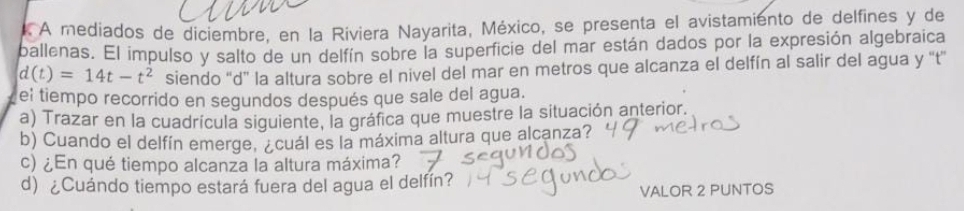 A mediados de diciembre, en la Riviera Nayarita, México, se presenta el avistamiento de delfines y de
ballenas. El impulso y salto de un delfín sobre la superficie del mar están dados por la expresión algebraica
d(t) = 14t − t² siendo “d” la altura sobre el nivel del mar en metros que alcanza el delfín al salir del agua y “t”
el tiempo recorrido en segundos después que sale del agua.
a) Trazar en la cuadrícula siguiente, la gráfica que muestre la situación anterior.
b) Cuando el delfín emerge, ¿cuál es la máxima altura que alcanza? 49 metros
c) ¿En qué tiempo alcanza la altura máxima? 7 segundos
d) ¿Cuándo tiempo estará fuera del agua el delfín? 14 segundos
VALOR 2 PUNTOS